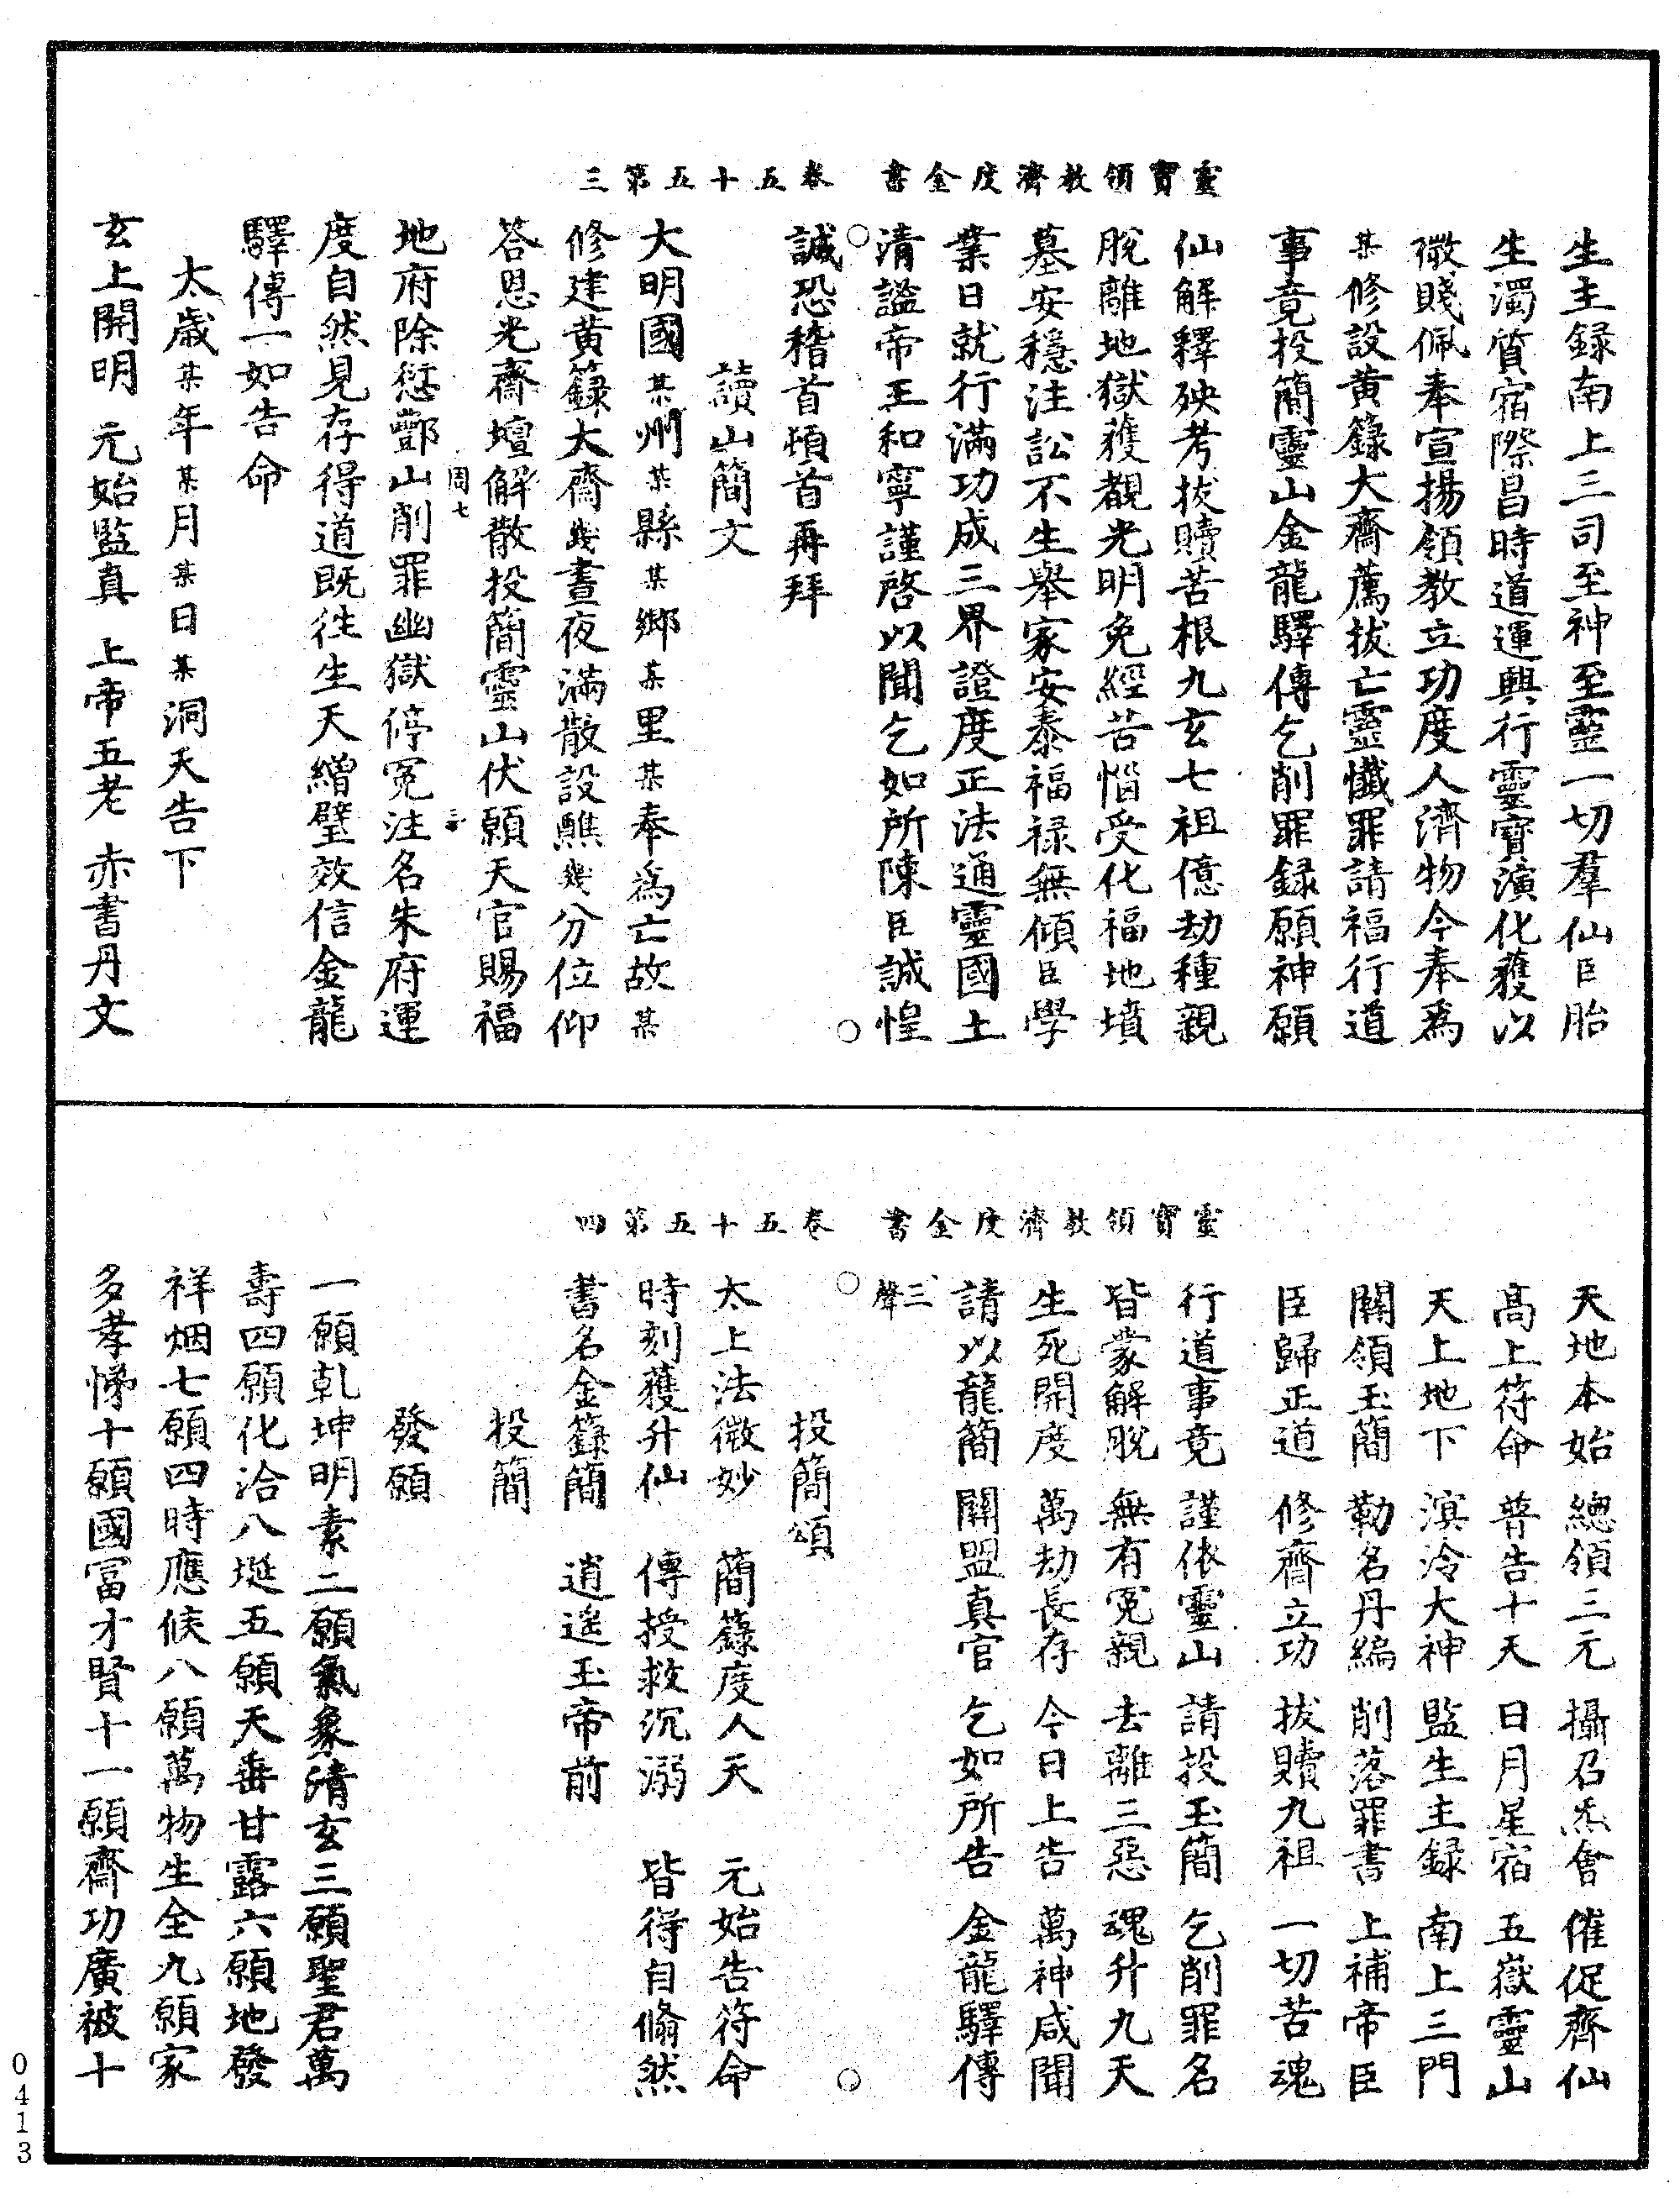 生主録南上三司至神至靈一切羣仙臣胎
生濁質宿際昌時道運興行靈寶演化獲以
微賤佩奉宣揚領教立功度人濟物今奉爲
某修設黄籙大齋薦拔亡靈懺罪請福行道
事竟投簡靈山金龍驛傳乞削罪録願神願
仙解釋殃考拔贖苦根九玄七祖億劫種親
脫離地獄獲覩光明免經苦惱受化福地墳
墓安穩注訟不生舉家安泰福禄無傾臣學
業日就行滿功成三界證度正法通靈國土
清謐帝王和寧謹啓以聞乞如所陳臣誠惶
靈寶領教濟度金書　卷五十五第三
誠恐稽首頓首再拜
讀山簡文
大明國某州某縣某鄉某里某奉爲亡故某
修建黄籙大齋幾晝夜滿散設醮幾分位仰
答恩光齋壇解散投簡靈山伏願天官賜福
周七　三
地府除愆酆山削罪幽獄停冤注名朱府運
度自然見存得道既往生天繒璧效信金龍
驛傳一如告命
太歲某年某月某日某洞天告下
玄上開明　元始監真　上帝五老　赤書丹文
天地本始　總領三元　攝召炁會　催促齊仙
高上符命　普告十天　日月星宿　五嶽靈山
天上地下　溟泠大神　監生主録　南上三門
關領玉簡　勒名丹編　削落罪書　上補帝臣
臣歸正道　修齋立功　拔贖九祖　一切苦魂
行道事竟　謹依靈山　請投玉簡　乞削罪名
皆蒙解脫　無有冤親　去離三惡　魂升九天
生死開度　萬劫長存　今日上告　萬神咸聞
請以龍簡　關盟真官　乞如所告　金龍驛傳
三聲
靈寶領教濟度金書　卷五十五第四
投簡頌
太上法微妙　簡籙度人天　元始告符命
時刻獲升仙　傳授救沉溺　皆得自翛然
書名金籙簡　逍遙玉帝前
投簡
發願
一願乾坤明素二願氣象清玄三願聖君萬
壽四願化洽八埏五願天垂甘露六願地發
祥烟七願四時應候八願萬物生全九願家
多孝悌十願國富才賢十一願齋功廣被十
0413